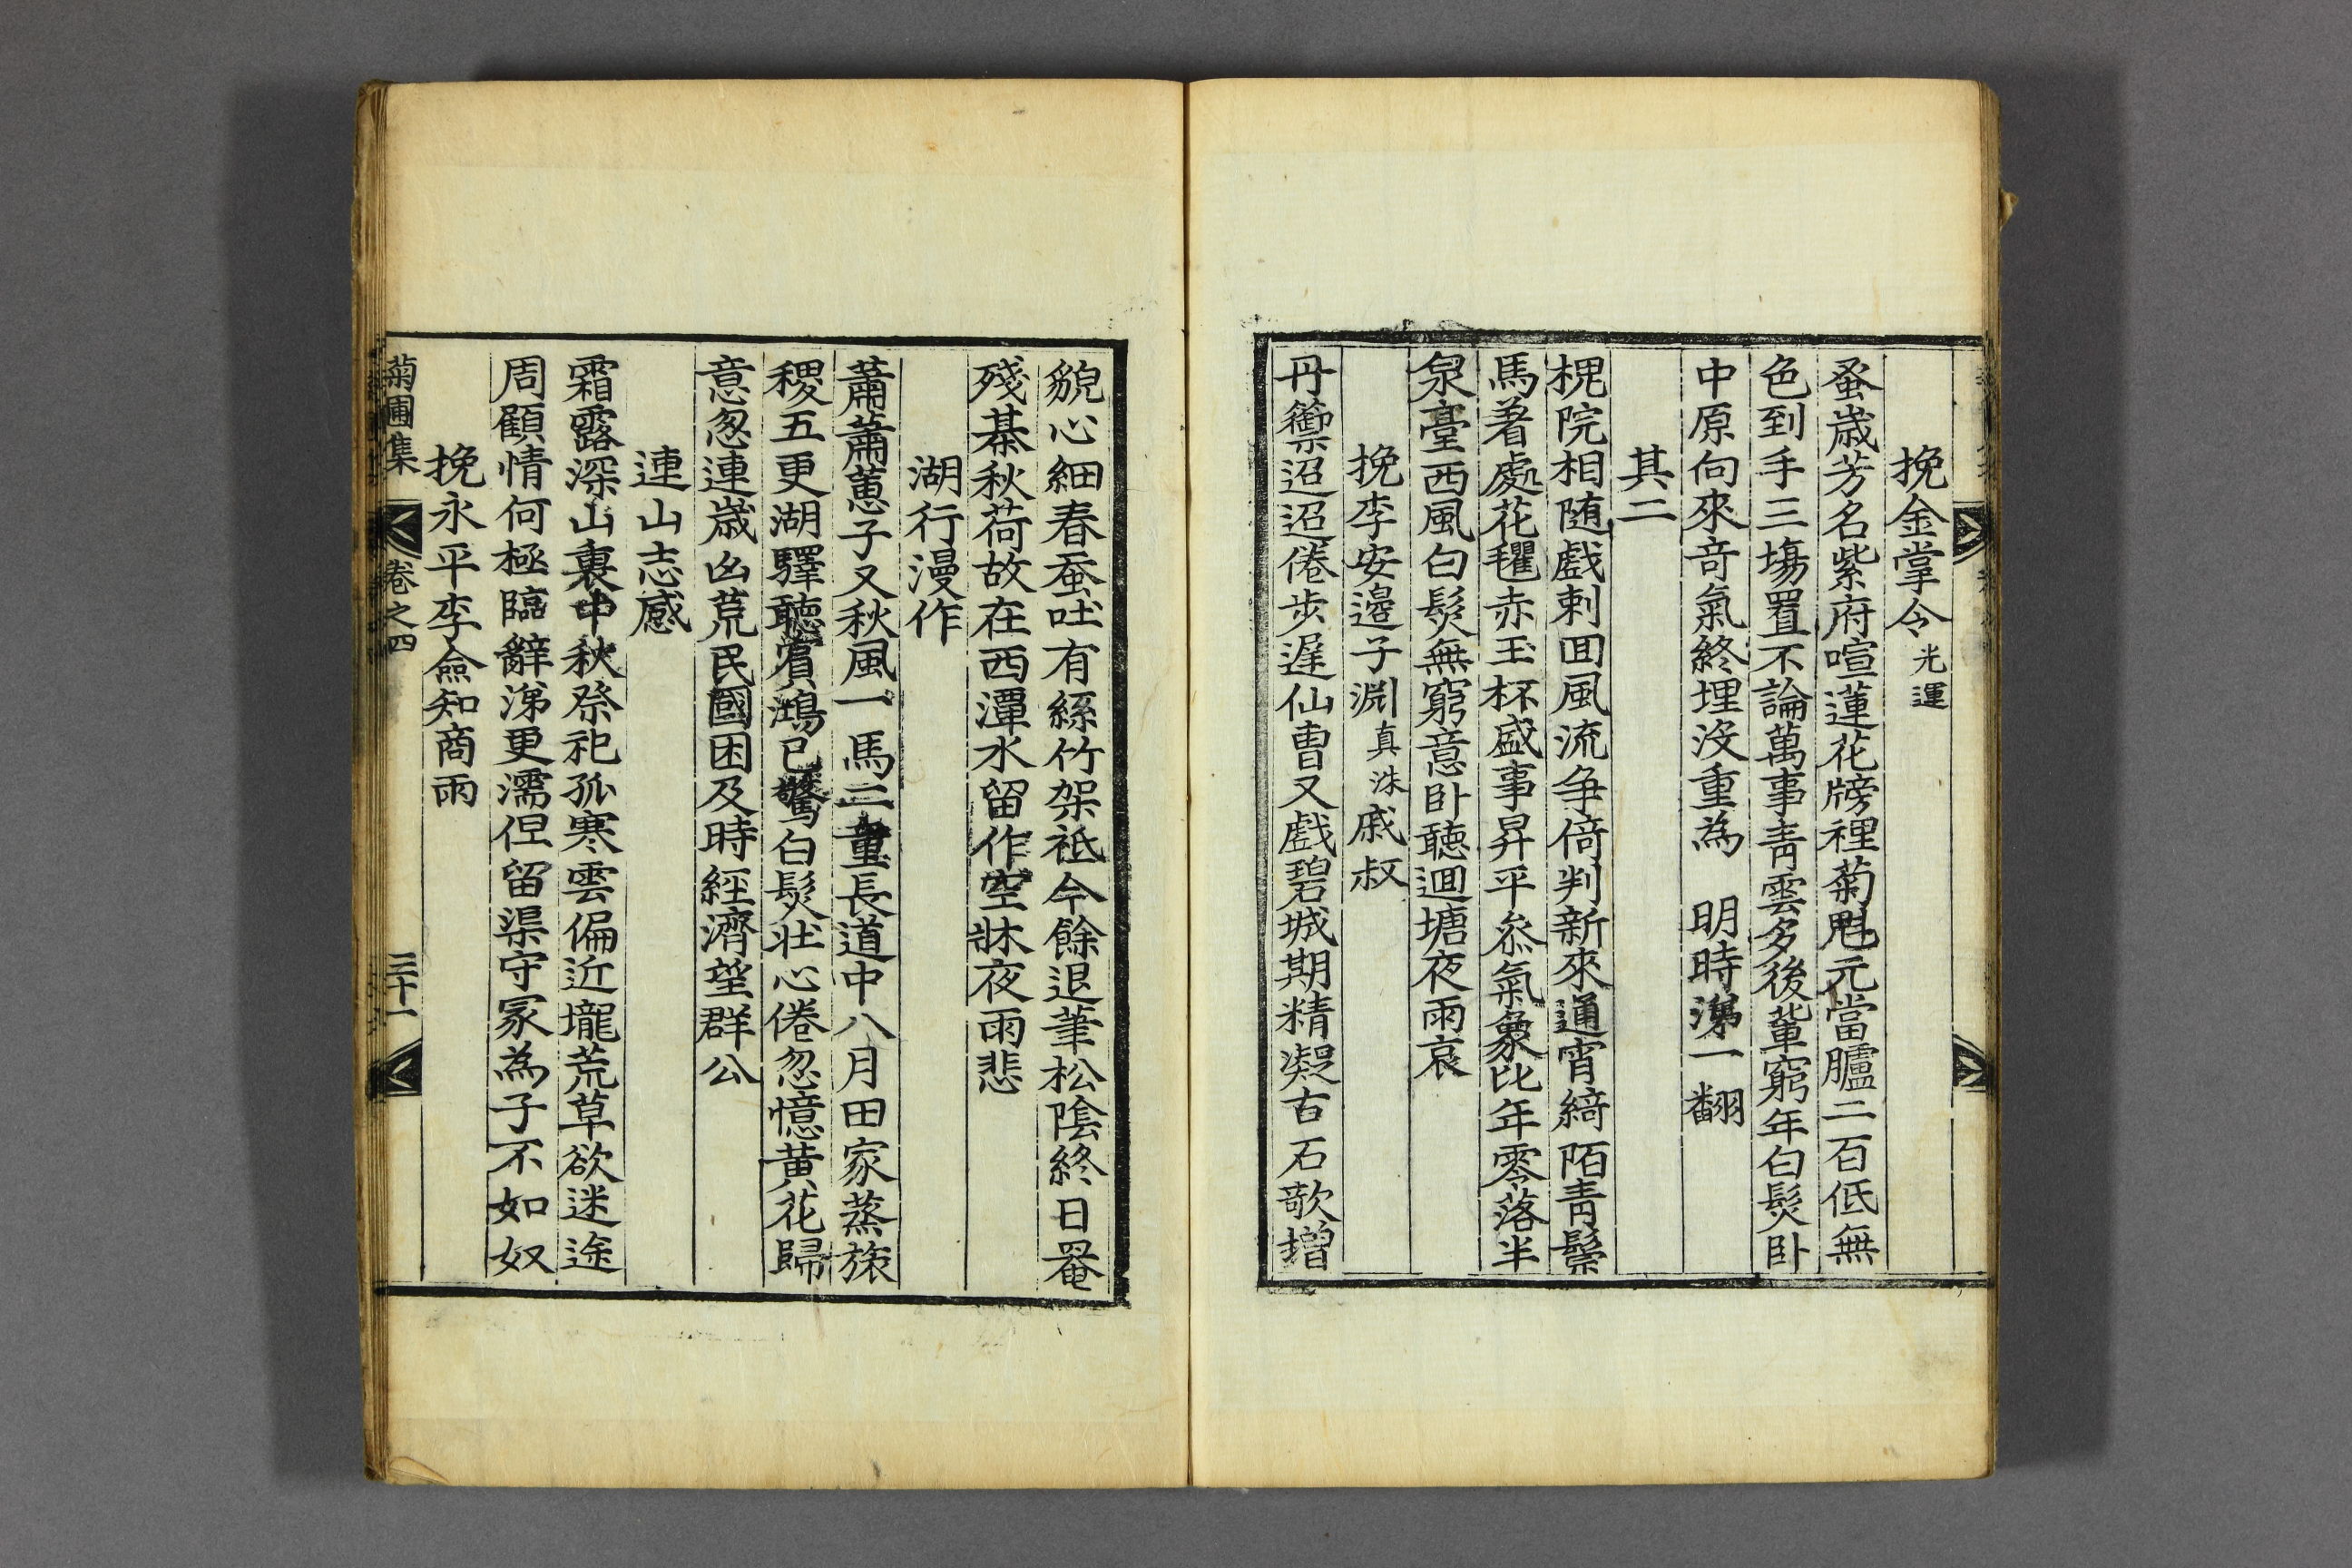 挽金掌令光運
蚤歲芳名紫府喧蓮花牓裡菊魁元當臚二百低無
色到手三塲置不論萬事靑雲多後輩窮年白髮卧
中原向來奇氣終埋沒重為 明時涕一翻
其二
槐院相随戱剌回風流争倚判新來通宵綺陌靑驄
馬着處花氍赤玉杯盛事昇平叅氣象比年零落半
泉臺西風白髮無窮意卧聽迴塘夜雨哀
挽李安邊子淵真洙戚叔
丹籞迢迢倦步遅仙曹又戱碧城期精凝古石欹增
貌心細春蚕吐有絲竹架祗今餘退筆松陰終日罨
殘棊秋荷故在西潭水留作空牀夜雨悲
湖行漫作
蕭蕭蔥子又秋風一馬二童長道中八月田家蒸旅
稷五更湖驛聽賓鴻已驚白髮壯心倦忽憶黃花歸
意怱連歲凶荒民國困及時經濟望群公
連山志感
霜露深山裏中秋祭祀孤寒雲偏近壠荒草欲迷途
周顧情何極臨辭涕更濡但留渠守冢為子不如奴
挽永平李僉知商雨
菊圃集 卷之四 三十一